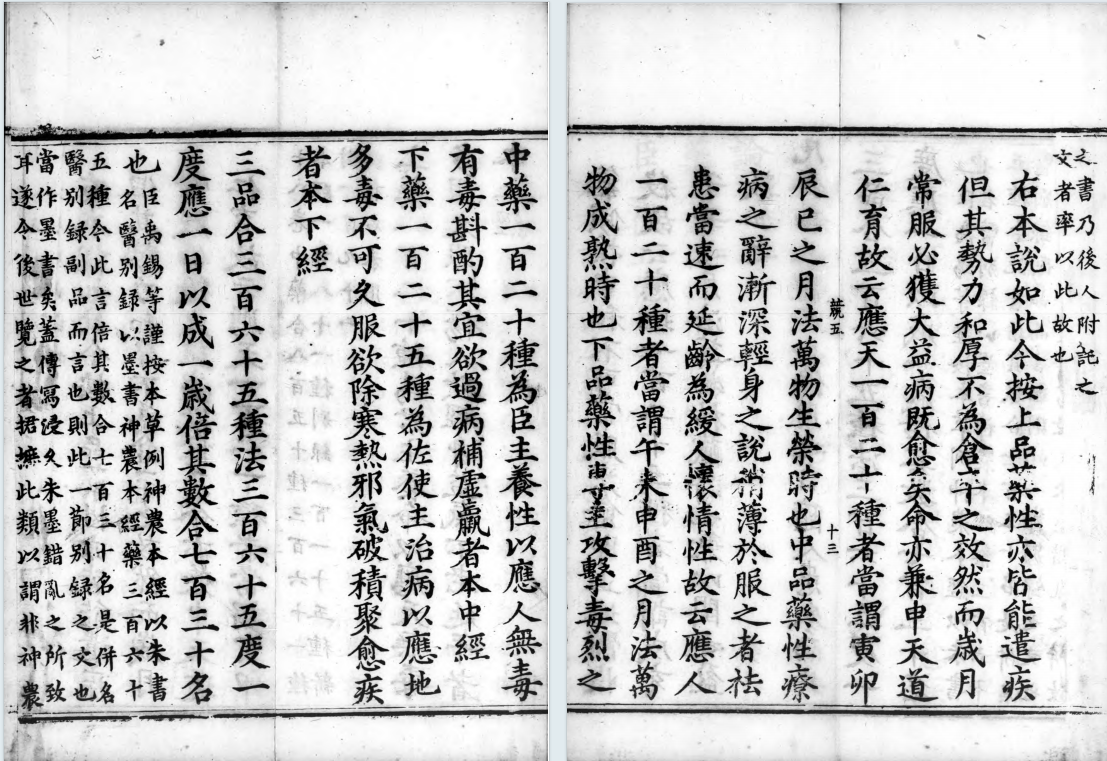 中藥一百二十種為臣主養性以應人無毒
有毒斟酌其宜欲遏病補虛羸者本中經
下藥一百二十五種為佐使主治病以應地
多毒不可久服欲除寒熱邪氣破積聚愈疾
者本下經
三品合三百六十五種法三百六十五度一
度應一日以成一歲倍其數合七百三十名
也臣禹錫等謹按本草例神農本經以朱書
名醫别録以墨書神農本經藥三百六十
五種今此言倍其數合七百三十名是併名
醫别録副品而言也則此一節别録之文也
當作墨書矣蓋傳寫浸久朱墨錯亂之所致
耳遂令後世覽之者捃摭此類以謂非神農
之書乃後人附託之
文者率以此故也
右本說如此今按上品藥性亦皆能遣疾
但其勢力和厚不為倉卒之效然而歲月
常服必獲大益病既愈矣命亦兼申天道
仁育故云應天一百二十種者當謂寅卯
競五
十三
辰巳之月法萬物生榮時也中品藥性療
病之辭漸深輕身之說稍薄於服之者祛
患當速而延齡為緩人懷情性故云應人
一百二十種者當謂午未申酉之月法萬
物成熟時也下品藥性專主攻擊毒烈之